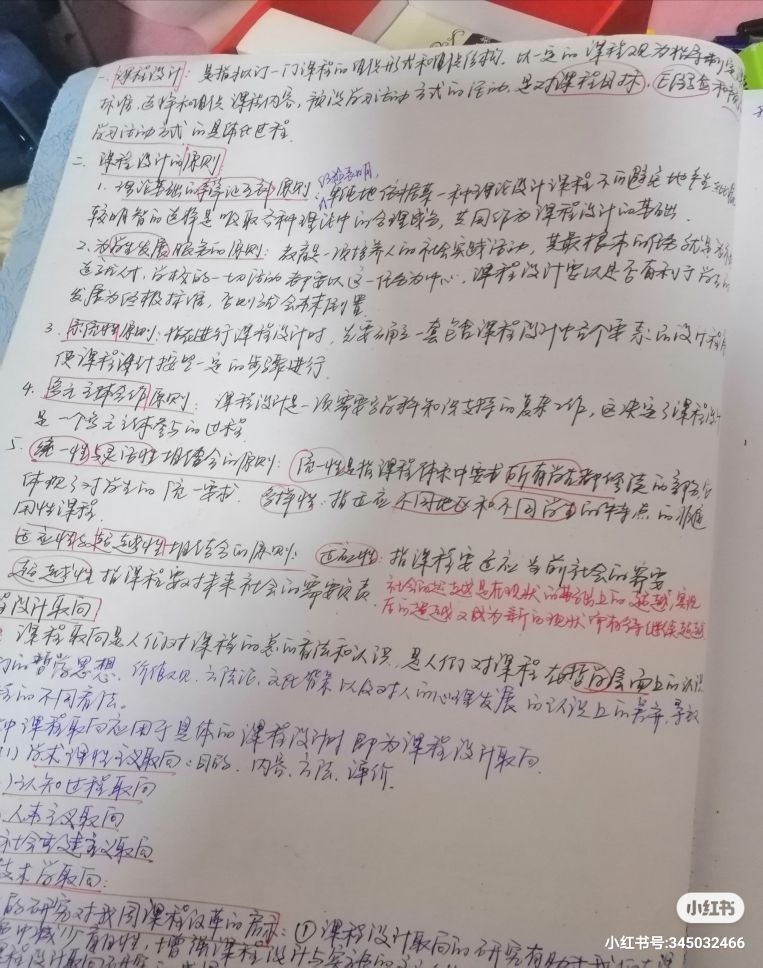 一、课程设计：是指拟订一门课程的组织形式和组织结构。以一定的课程观为指导制定课程
标准、选择和组织课程内容、预设学习活动方式的活动，是对课程目标、
学习活动方式的具体化过程。
二、课程设计的原则
1. 理论基础的辩证互补原则：单纯地依据某一种理论设计课程不可避免地产生
较明智的选择是吸取各种理论中的合理成分，共同作为课程设计的基础．
2. 为学生发展服务的原则：教育是一项培养人的社会实践活动，其最根本的任务就是
造就人才，学校的一切活动都要以这一任务为中心，课程设计要以是否有利于学生的
发展为终极标准，否则就会本末倒置
3. 系统性原则：指在进行课程设计时，先要确立一套包含课程设计中各个要素的设计程序
使课程设计按照一定的步骤进行
4. 多元主体合作原则：课程设计是一项需要多学科知识支持的复杂工作，这决定了课程设计
是一个多元主体参与的过程．
5. 统一性与灵活性相结合的原则：统一性是指课程体系中要求所有学生都修读的
体现了对学生的统一要求．多样性：指适应不同地区和不同学生的特点的非通
用性课程
适应性与超越性相结合的原则：适应性：指课程要适应当前社会的需要
超越性指课程要对未来社会的需要负责．
社会的超越是在现状的基础上的超越，实现
后的超越又成为新的现状 继续超越
设计取向
课程取向是人们对课程的总的看法和认识，是人们对课程在哲学层面上的认识
的哲学思想、价值观、方法论、文化背景以及对人的心理发展的认识上的差异，导致
的不同看法。
课程取向应用于具体的课程设计时即为课程设计取向
(1) 学术理性主义取向：目的、内容、方法、评价．
)认知过程取向
人本主义取向
社会重建主义取向
技术学取向：
的研究对我国课程改革的启示：①课程设计取向的研究有助于我们
减少盲目性，增强课程设计与实施的
程设计取向研究
小红书
小红书号:345032466